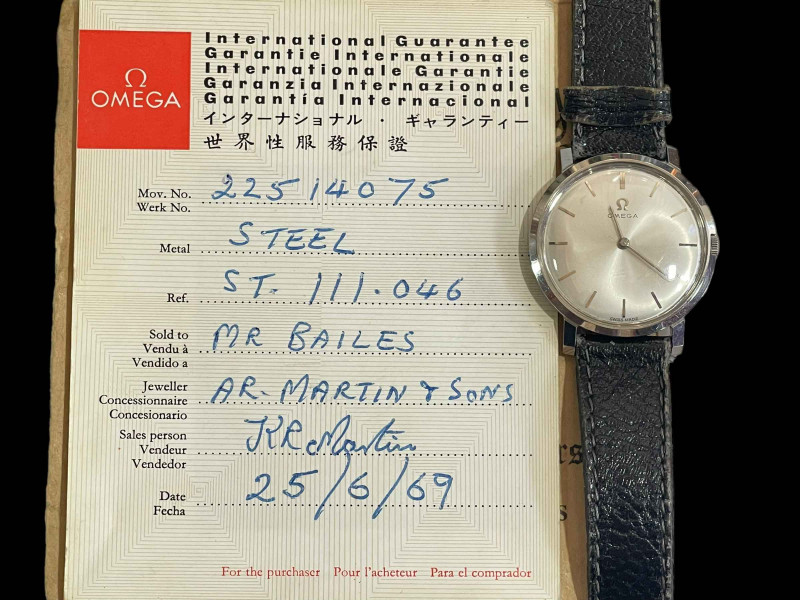 Ω
OMEGA
International Guarantee
Garantie Internationale
Internationale Garantie
Garanzia Internazionale
Garantía Internacional
インターナショナル・ギャランティー
世界性服務保證
Mov. No. 22514075
Werk No.
Metal STEEL
Ref. ST. 111.046
Sold to MR BAILES
Vendu à
Vendido a
Jeweller AR. MARTIN & SONS
Concessionnaire
Concesionario
Sales person KR Martin
Vendeur
Vendedor
Date 25/6/69
Fecha
For the purchaser Pour l'acheteur Para el comprador
Ω
OMEGA
SWISS MADE